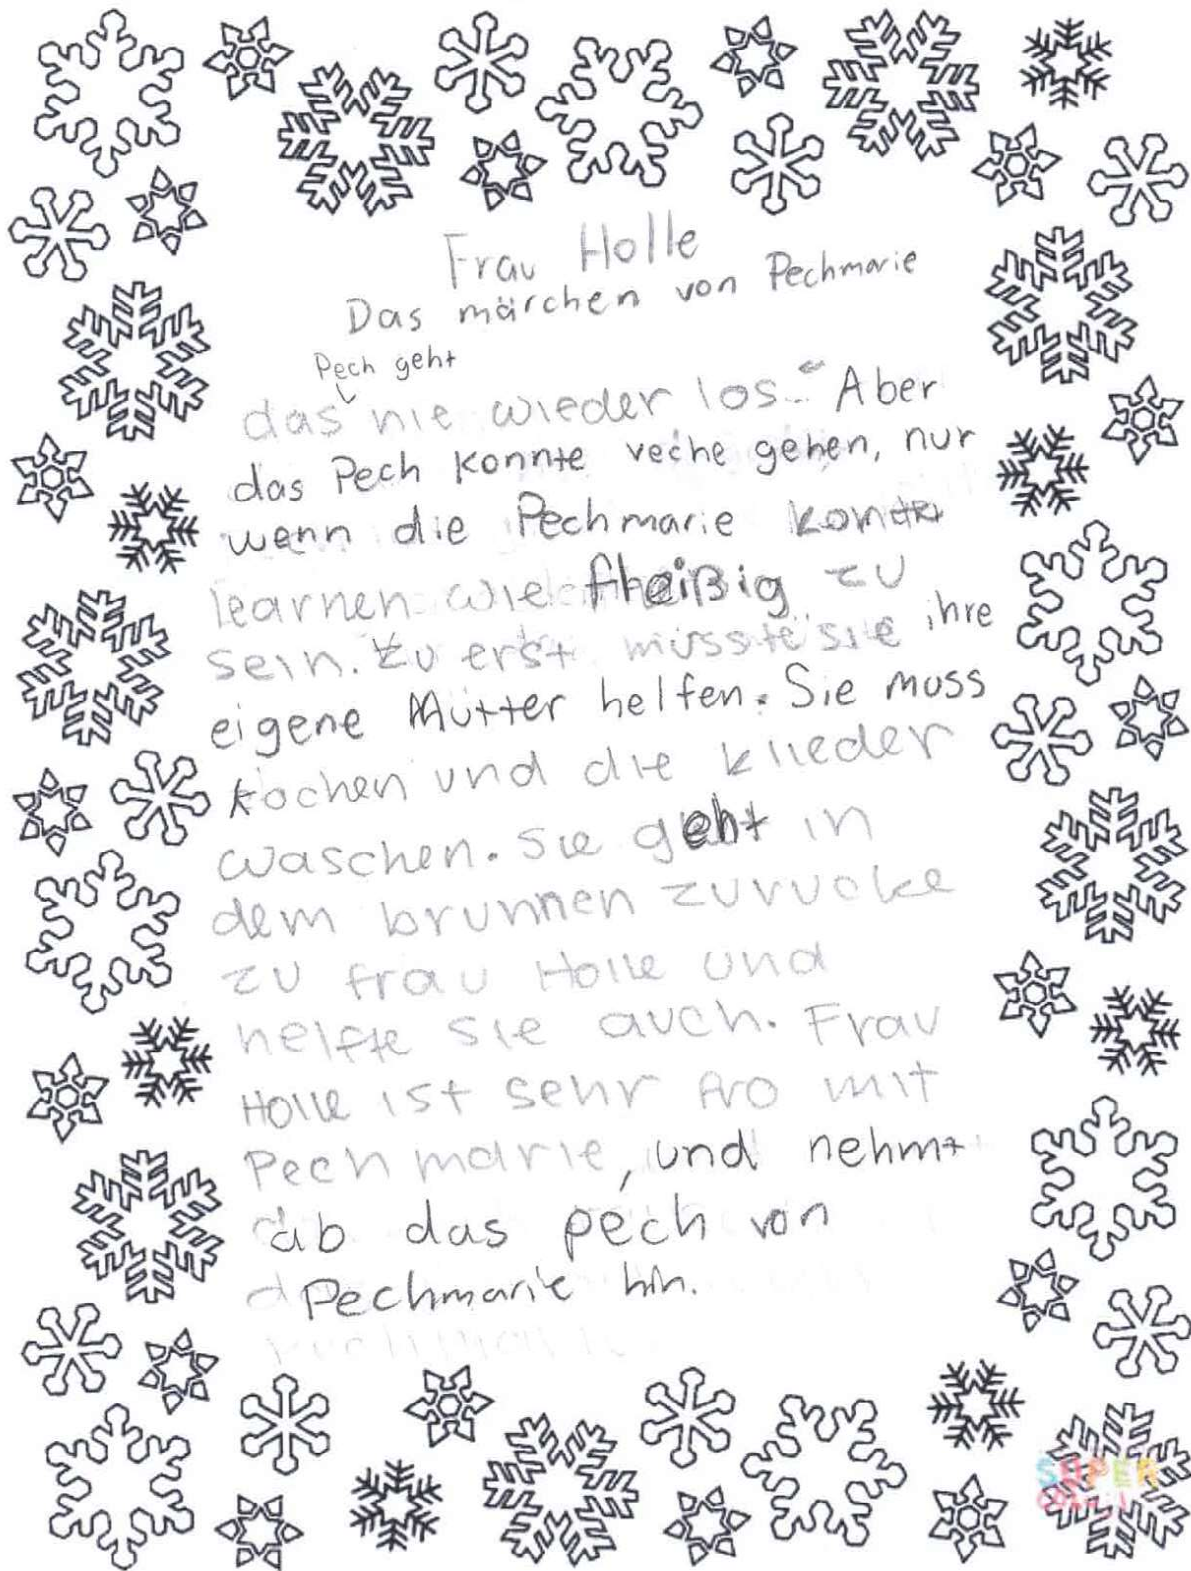 Frau Holle
Das märchen von Pechmarie
Pech geht
das nie wieder los." Aber
das Pech konnte veche gehen, nur
wenn die Pechmarie konnte
learnen wie fleißig zu
sein. Zu erst müsste sie ihre
eigene Mutter helfen. Sie muss
kochen und die klieder
waschen. Sie geht in
dem brunnen zurucke
zu frau Holle und
helfte sie auch. Frau
Holle ist sehr fro mit
Pechmarie, und nehmt
ab das pech von
Pechmarie hin.
SUPER